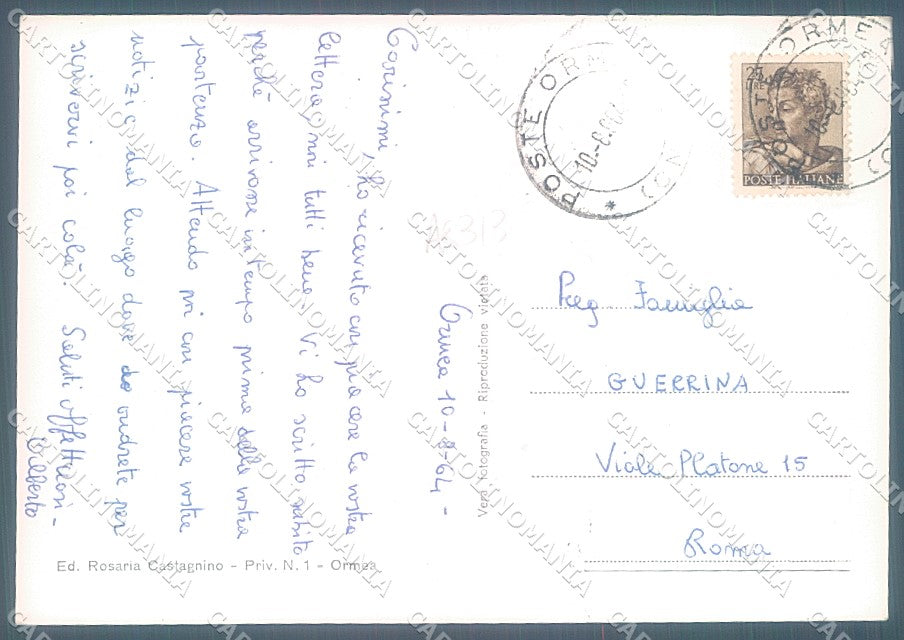 Carissimi, Ho ricevuto con piacere la vostra
lettera, noi tutti bene. Vi ho scritto subito
perché arrivasse in tempo prima della vostra
partenza. Attendo poi con piacere vostre
notizie dal luogo dove andrete per
scrivervi poi colà. Saluti affettuosi -
Ormea 10-8-64 -
Ed. Rosaria Castagnino - Priv. N. 1 - Ormea
Vera fotografia - Riproduzione vietata
10313
POSTE ORMEA
10.-8.64
(CN) *
25
POSTE ITALIANE
POSTE ORMEA
10.-8.64
Preg Famiglia
GUERRINA
Viale Platone 15
Roma
CARTOLINOMANIA